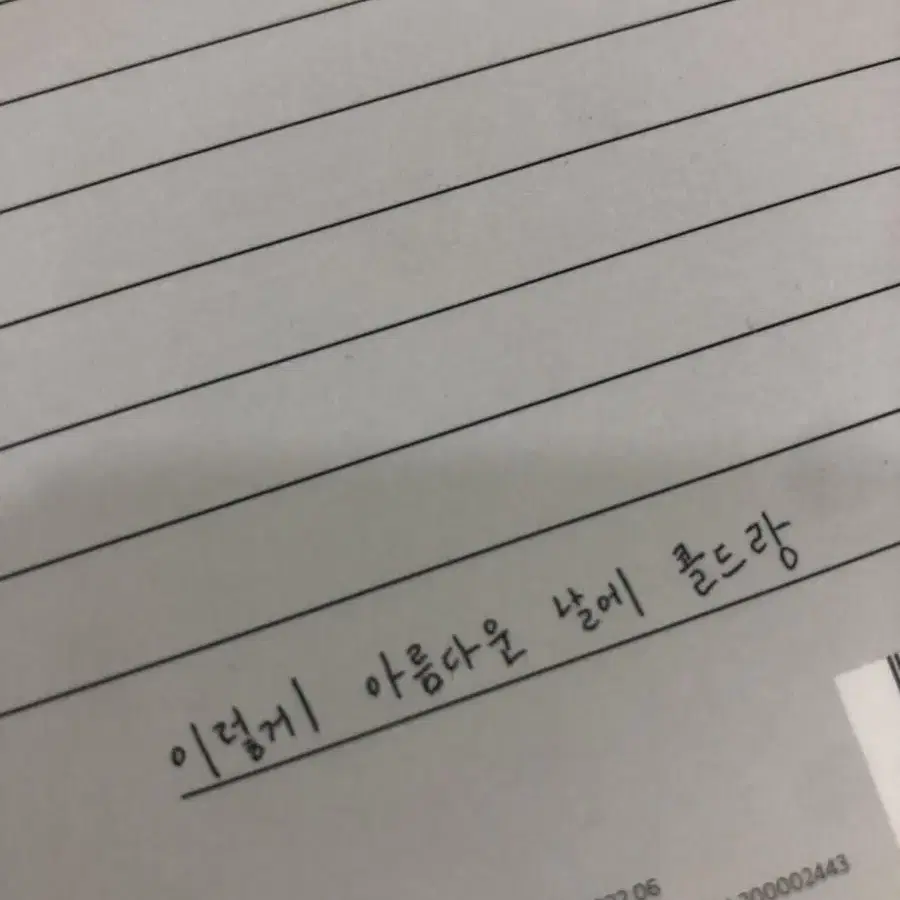 이렇게 아름다운 날에 콜드랑
02.06
200002443